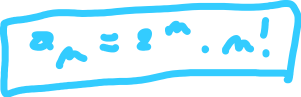 aₙ = 2ⁿ · n!